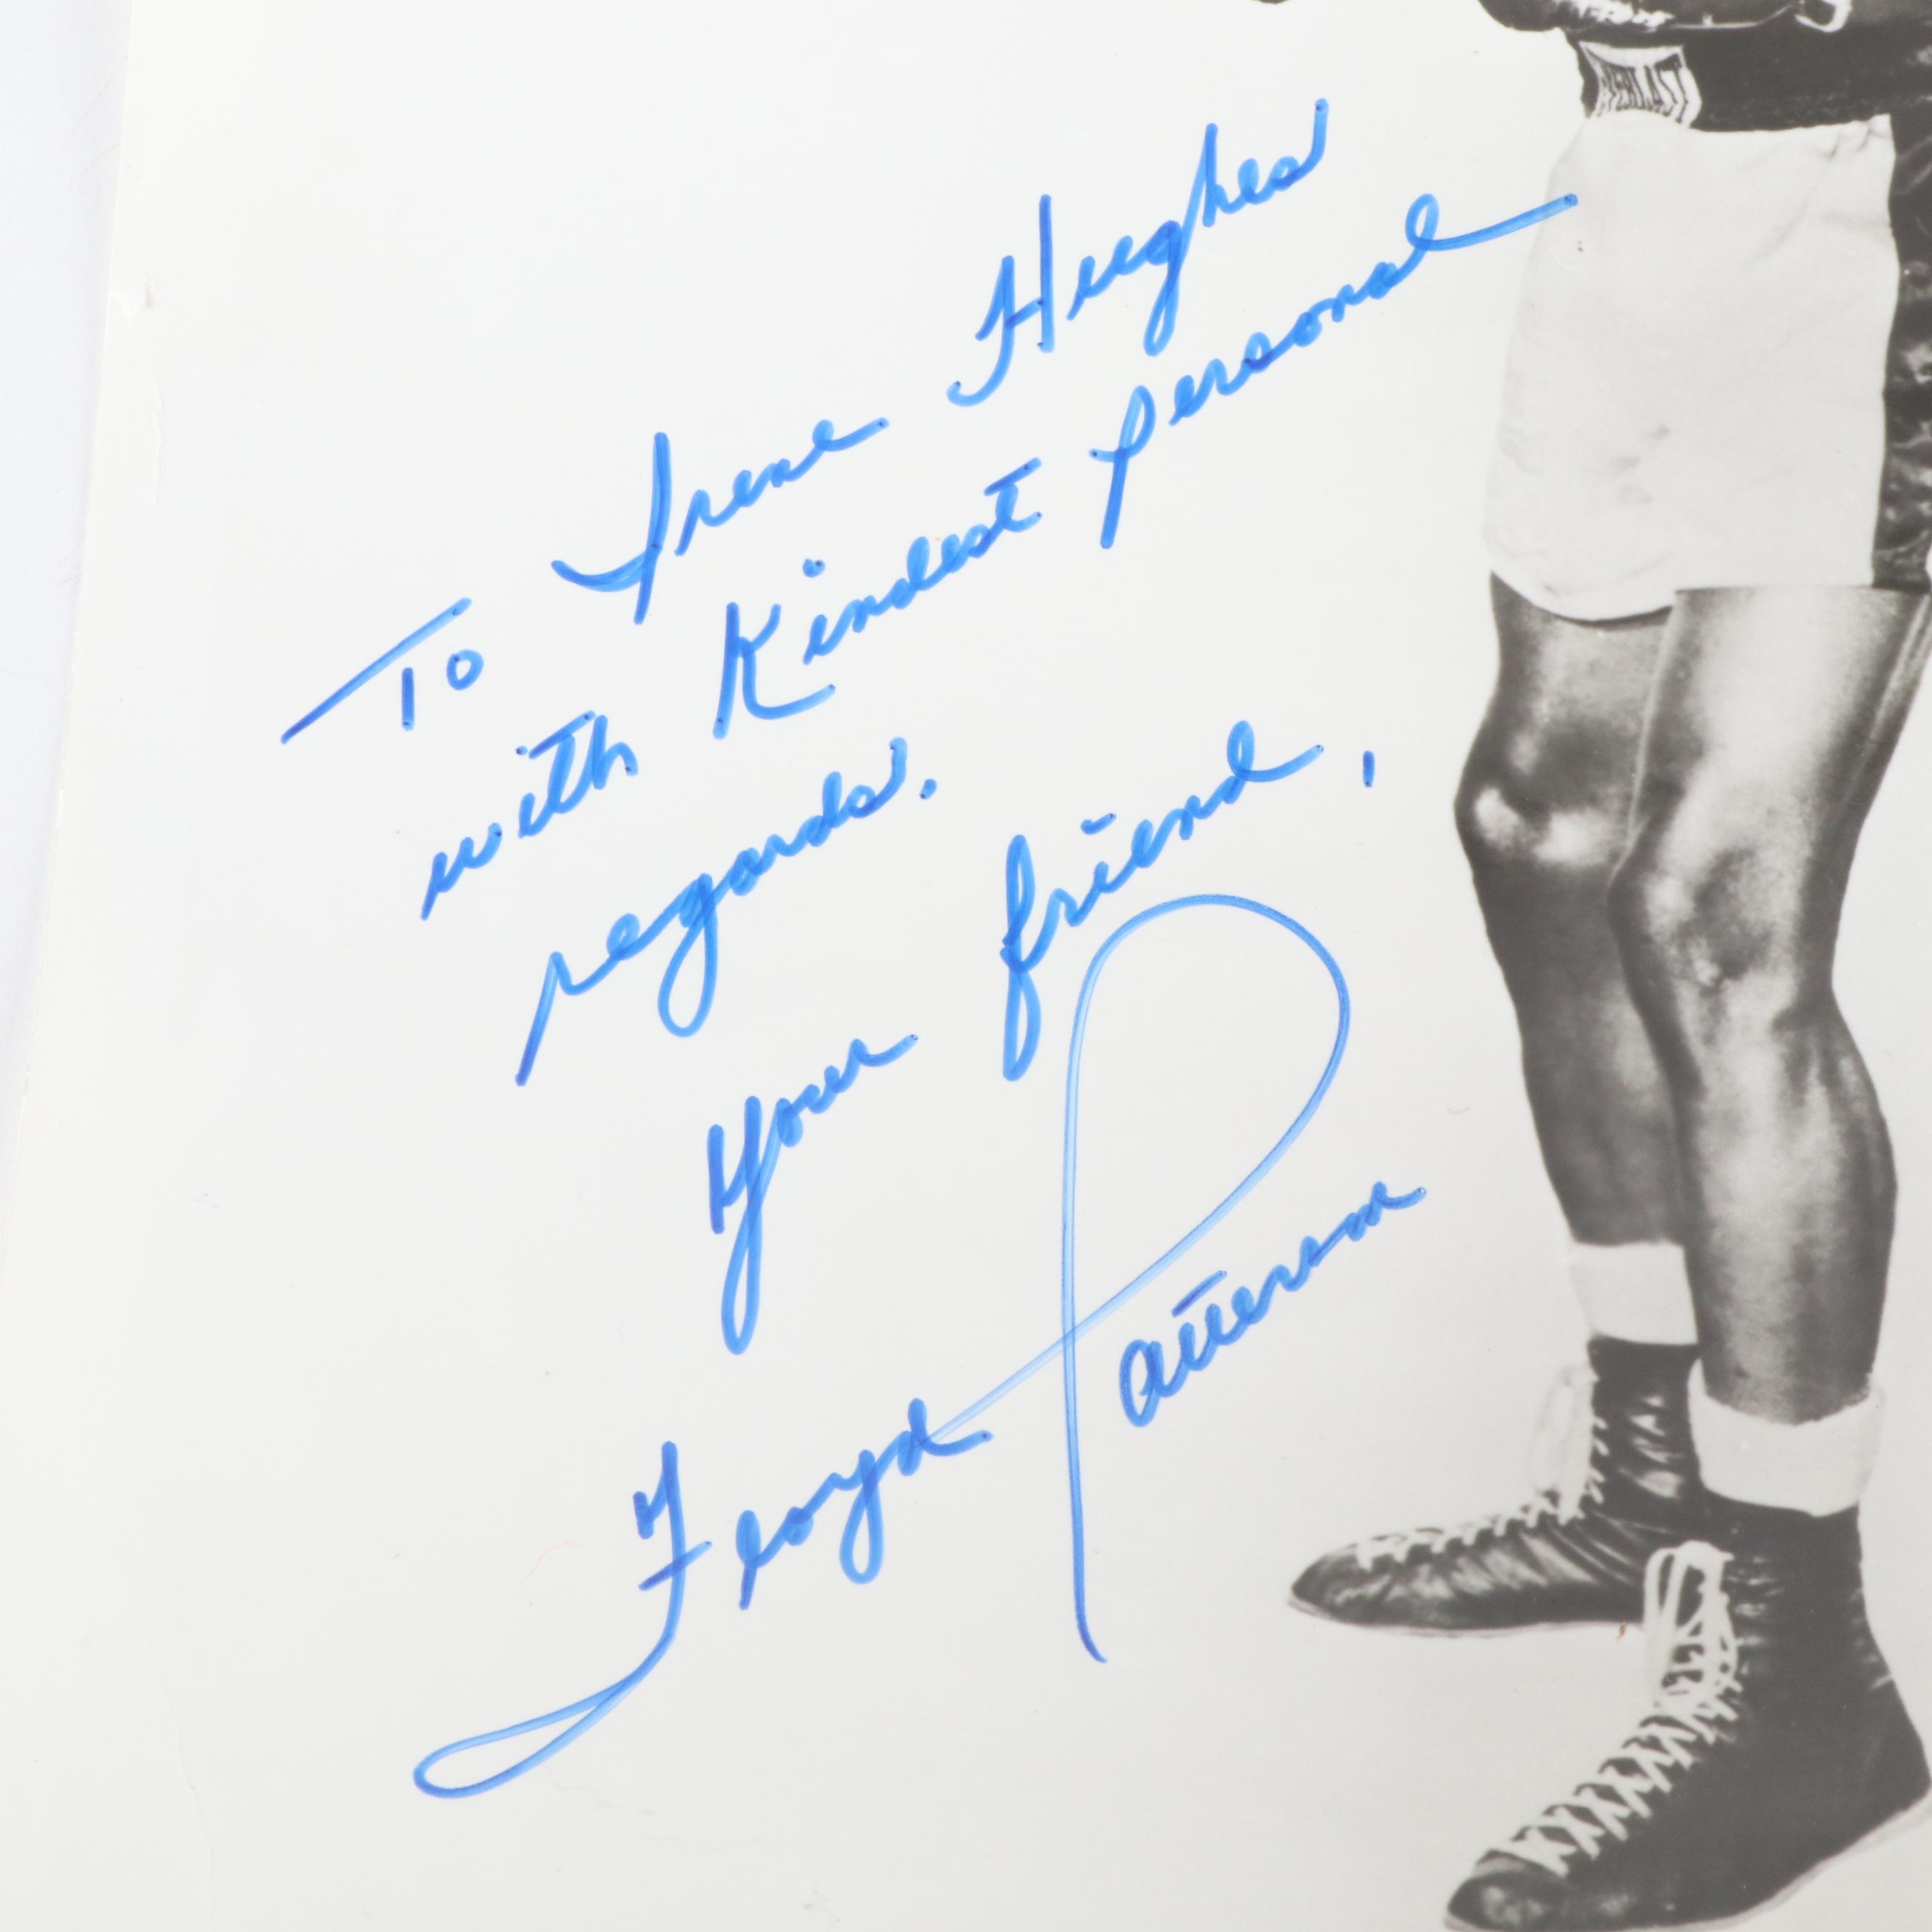 EVERLAST
To Irene Hughes
with Kindest personal
regards.
Your friend,
Floyd Patterson